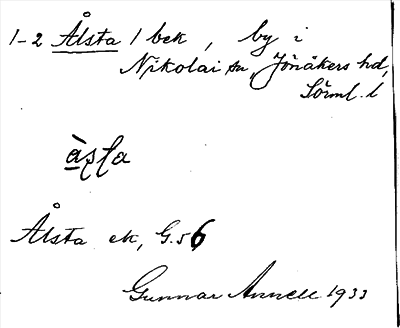 1-2 Ålsta 1 bek, by i
Nikolai sn, Jönåkers hd,
Sörml. l
àsta
Ålsta ek, G.56
Gunnar Annell 1933